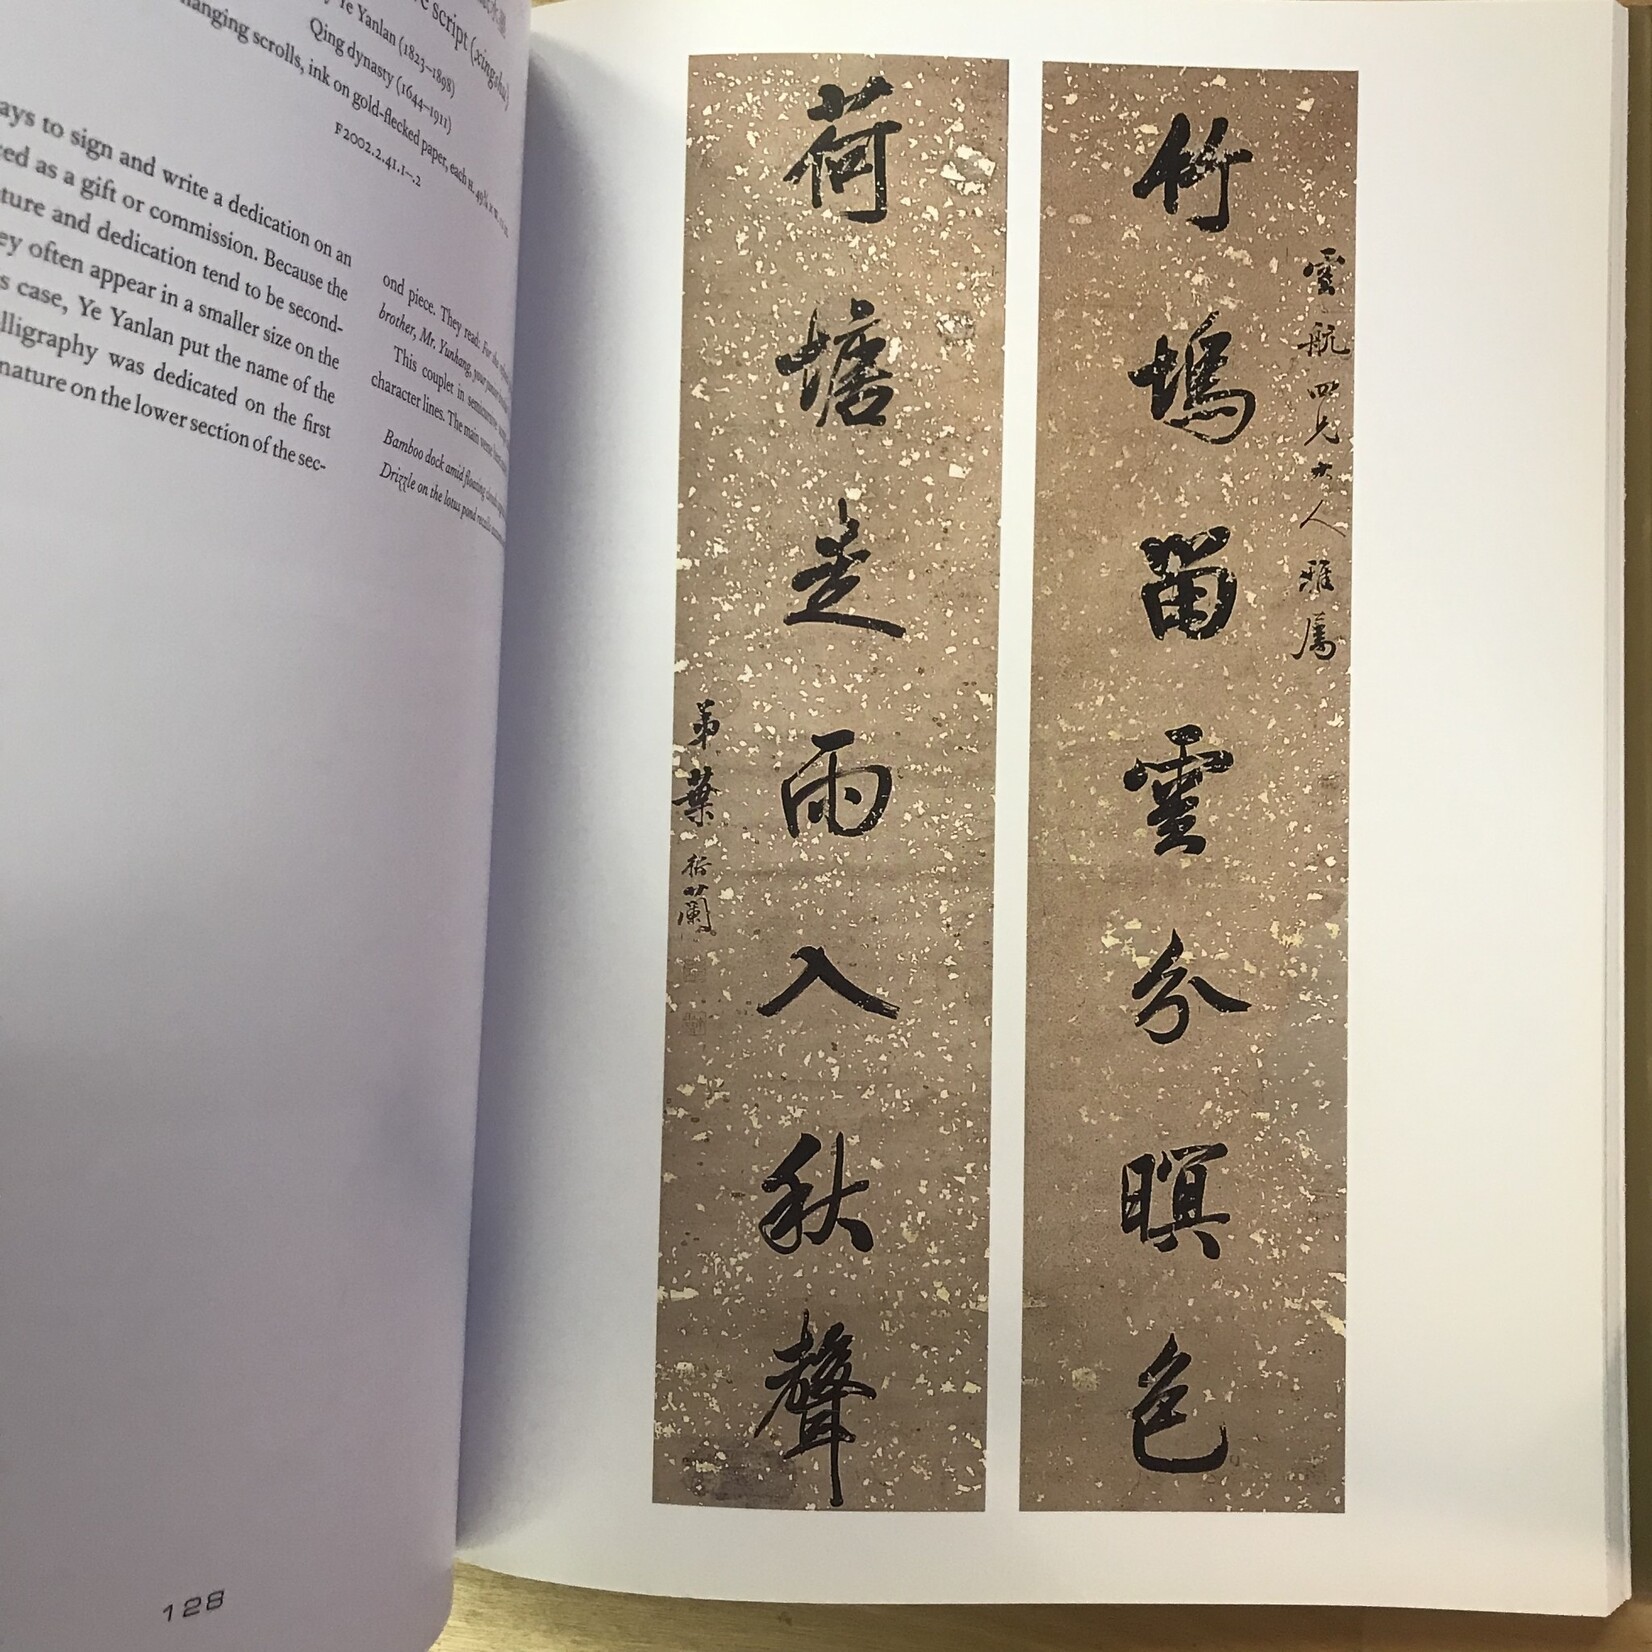 e script (xingshu)
y Ye Yanlan (1823–1898)
Qing dynasty (1644–1911)
hanging scrolls, ink on gold-flecked paper, each H. 49
F2002.2.41.1–.2
ays to sign and write a dedication on an
ed as a gift or commission. Because the
ture and dedication tend to be second-
ey often appear in a smaller size on the
s case, Ye Yanlan put the name of the
lligraphy was dedicated on the first
nature on the lower section of the sec-
ond piece. They read: For the
brother, Mr. Yunhang, your younger
This couplet in semicursive script
character lines. The main verse
Bamboo dock amid floating clouds
Drizzle on the lotus pond
128
雲航四兄大人雅屬
竹塢留雲分暝色
荷塘走雨入秋聲
弟葉衍蘭